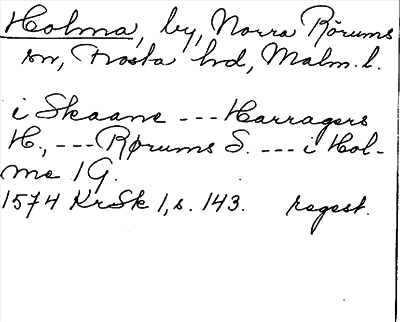 Holma, by, Norra Rörums
sn, Frosta hd, Malm. l.
i Skaane --- Harragers
H., --- Rørums S. --- i Hol-
me 1 G.
1574 KrSk 1, s. 143. regest.